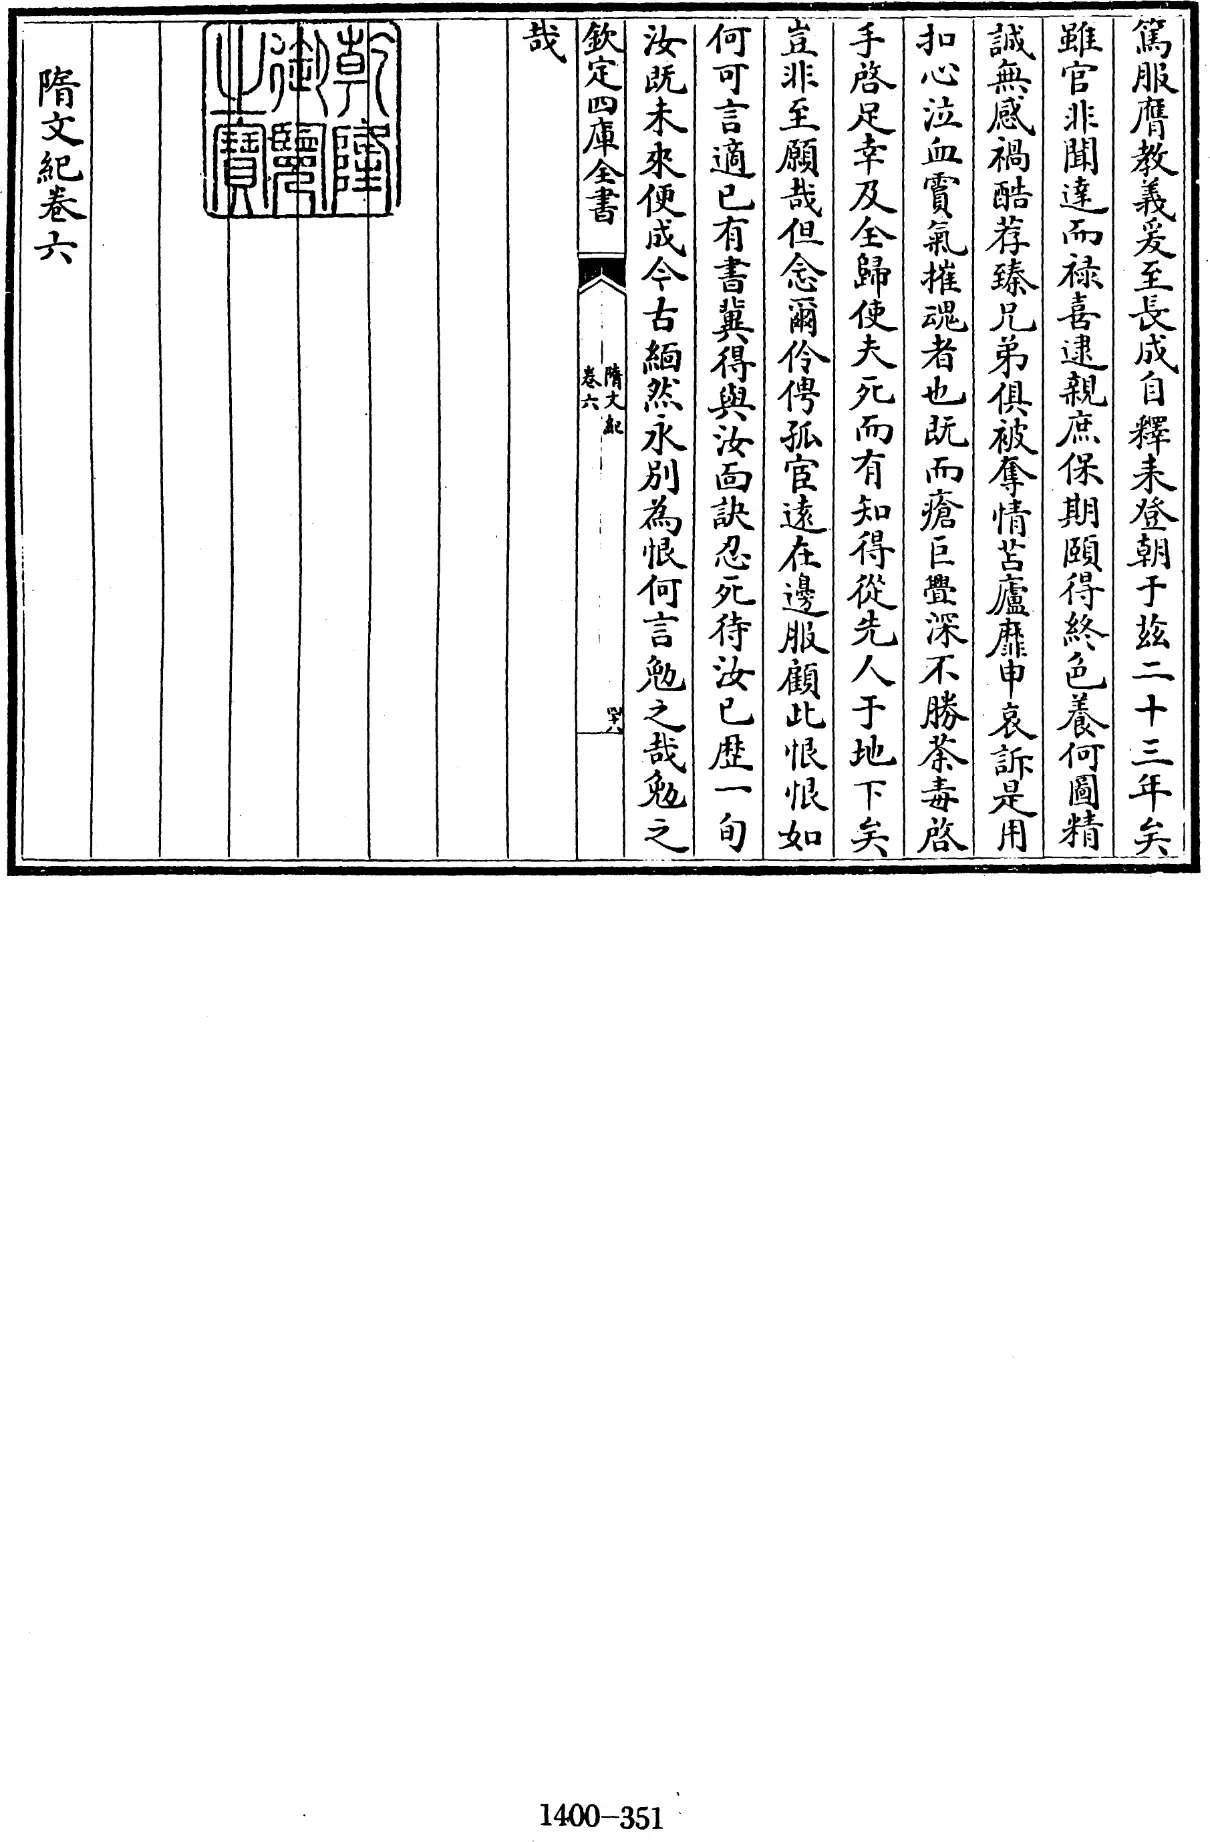 篤服膺教義爰至長成自釋耒登朝于兹二十三年矣
雖官非聞達而禄喜逮親庶保期頤得終色養何圖精
誠無感禍酷荐臻兄弟俱被奪情苫廬靡申哀訴是用
扣心泣血霣氣摧魂者也既而瘡巨舋深不勝荼毒啓
手啓足幸及全歸使夫死而有知得從先人于地下矣
豈非至願哉但念爾伶俜孤宦遠在邊服顧此恨恨如
何可言適已有書冀得與汝面訣忍死待汝已歴一旬
汝既未來便成今古緬然永别為恨何言勉之哉勉之
欽定四庫全書
隋文紀
卷六
四十八
哉
乾隆
御覽
之寶
隋文紀卷六
1400-351